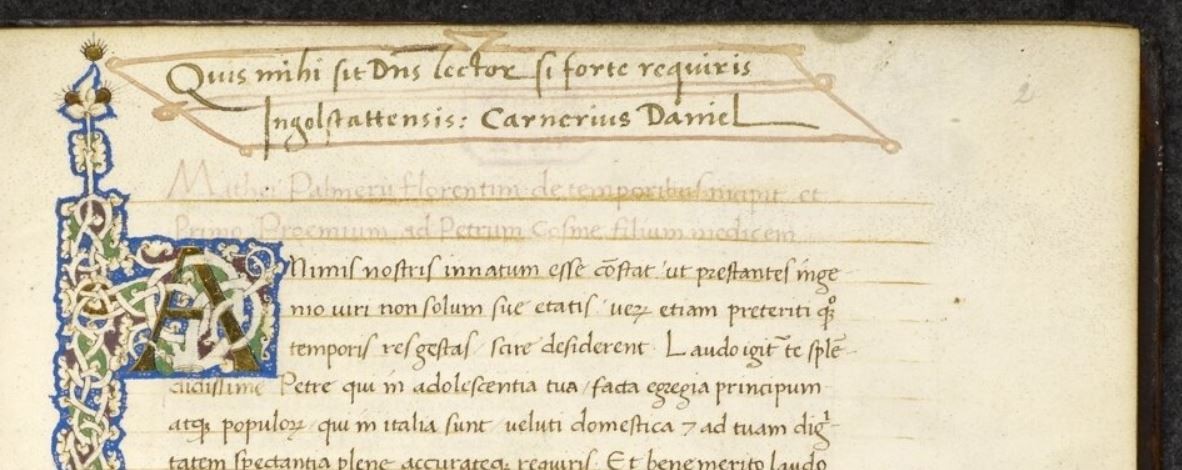 Quis mihi sit Dn̄s lector si forte requiris
Ingolstattensis: Carnerius Daniel
2
Mathei Palmerii florentini de temporibus incipit et
Primo Proemium ad Petrum Cosme filium medicem
ANimis nostris innatum esse cōstat ut prestantes inge
nio uiri non solum sue etatis ueꝝ etiam preteriti qͦꝫ
temporis res gestas scire desiderent. Laudo igit̃ te splē
didissime Petre qui in adolescentia tua facta egregia principum
atqꝫ populoꝝ qui in italia sunt ueluti domestica ⁊ ad tuam digͥ
tatem spectantia plene accurateqꝫ requiris. Et bene merito laudo